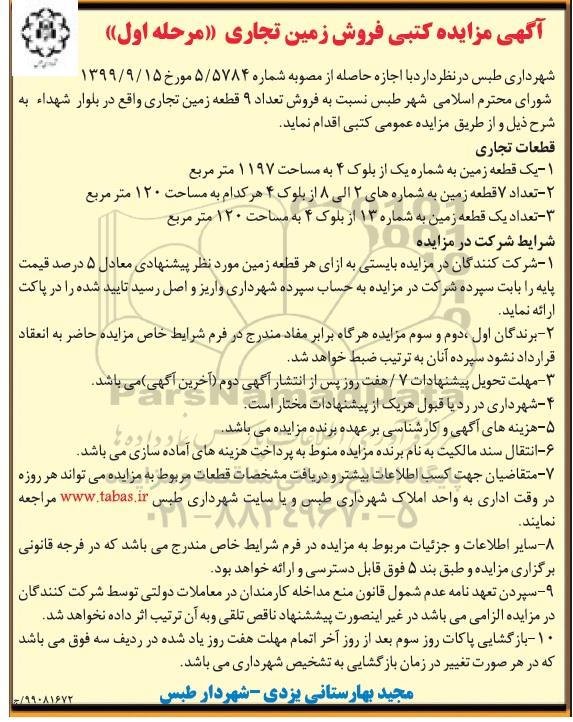 آگهی مزایده کتبی فروش زمین تجاری «مرحله اول»
شهرداری طبس درنظرداردبا اجازه حاصله از مصوبه شماره ۵/۵۷۸۴ مورخ ۱۳۹۹/۹/۱۵
شورای محترم اسلامی شهر طبس نسبت به فروش تعداد ۹ قطعه زمین تجاری واقع در بلوار شهداء به
شرح ذیل و از طریق مزایده عمومی کتبی اقدام نماید.
قطعات تجاری
۱-یک قطعه زمین به شماره یک از بلوک ۴ به مساحت ۱۱۹۷ متر مربع
۲-تعداد ۷قطعه زمین به شماره های ۲ الی ۸ از بلوک ۴ هرکدام به مساحت ۱۲۰ متر مربع
۳-تعداد یک قطعه زمین به شماره ۱۳ از بلوک ۴ به مساحت ۱۲۰ متر مربع
شرایط شرکت در مزایده
۱-شرکت کنندگان در مزایده بایستی به ازای هر قطعه زمین مورد نظر پیشنهادی معادل ۵ درصد قیمت
پایه را بابت سپرده شرکت در مزایده به حساب سپرده شهرداری واریز و اصل رسید تایید شده را در پاکت
ارائه نماید.
۲-برندگان اول ،دوم و سوم مزایده هرگاه برابر مفاد مندرج در فرم شرایط خاص مزایده حاضر به انعقاد
قرارداد نشود سپرده آنان به ترتیب ضبط خواهد شد.
۳-مهلت تحویل پیشنهادات ۷ /هفت روز پس از انتشار آگهی دوم (آخرین آگهی)می باشد.
۴-شهرداری در رد یا قبول هریک از پیشنهادات مختار است.
۵-هزینه های آگهی و کارشناسی بر عهده برنده مزایده می باشد.
۶-انتقال سند مالکیت به نام برنده مزایده منوط به پرداخت هزینه های آماده سازی می باشد.
۷-متقاضیان جهت کسب اطلاعات بیشتر و دریافت مشخصات قطعات مربوط به مزایده می تواند هر روزه
در وقت اداری به واحد املاک شهرداری طبس و یا سایت شهرداری طبس www.tabas.ir مراجعه
نمایند.
۸-سایر اطلاعات و جزئیات مربوط به مزایده در فرم شرایط خاص مندرج می باشد که در فرجه قانونی
برگزاری مزایده و طبق بند ۵ فوق قابل دسترسی و ارائه خواهد بود.
۹-سپردن تعهد نامه عدم شمول قانون منع مداخله کارمندان در معاملات دولتی توسط شرکت کنندگان
در مزایده الزامی می باشد در غیر اینصورت پیششنهاد ناقص تلقی وبه آن ترتیب اثر داده نخواهد شد.
۱۰-بازگشایی پاکات روز سوم بعد از روز آخر اتمام مهلت هفت روز یاد شده در ردیف سه فوق می باشد
که در هر صورت تغییر در زمان بازگشایی به تشخیص شهرداری می باشد.
مجید بهارستانی یزدی -شهردار طبس
۹۹۰۸۱۶۷۲/ج
ParsNamadData
۰۲۱-۸۸۳۴۹۶۷۰-۵